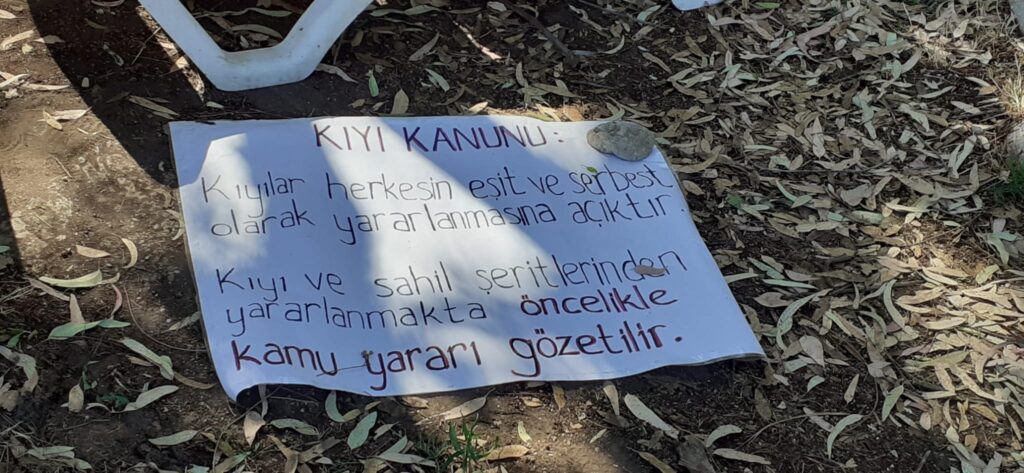 KIYI KANUNU:
Kıyılar herkesin eşit ve serbest
olarak yararlanmasına açıktır.
Kıyı ve sahil şeritlerinden
yararlanmakta öncelikle
kamu yararı gözetilir.